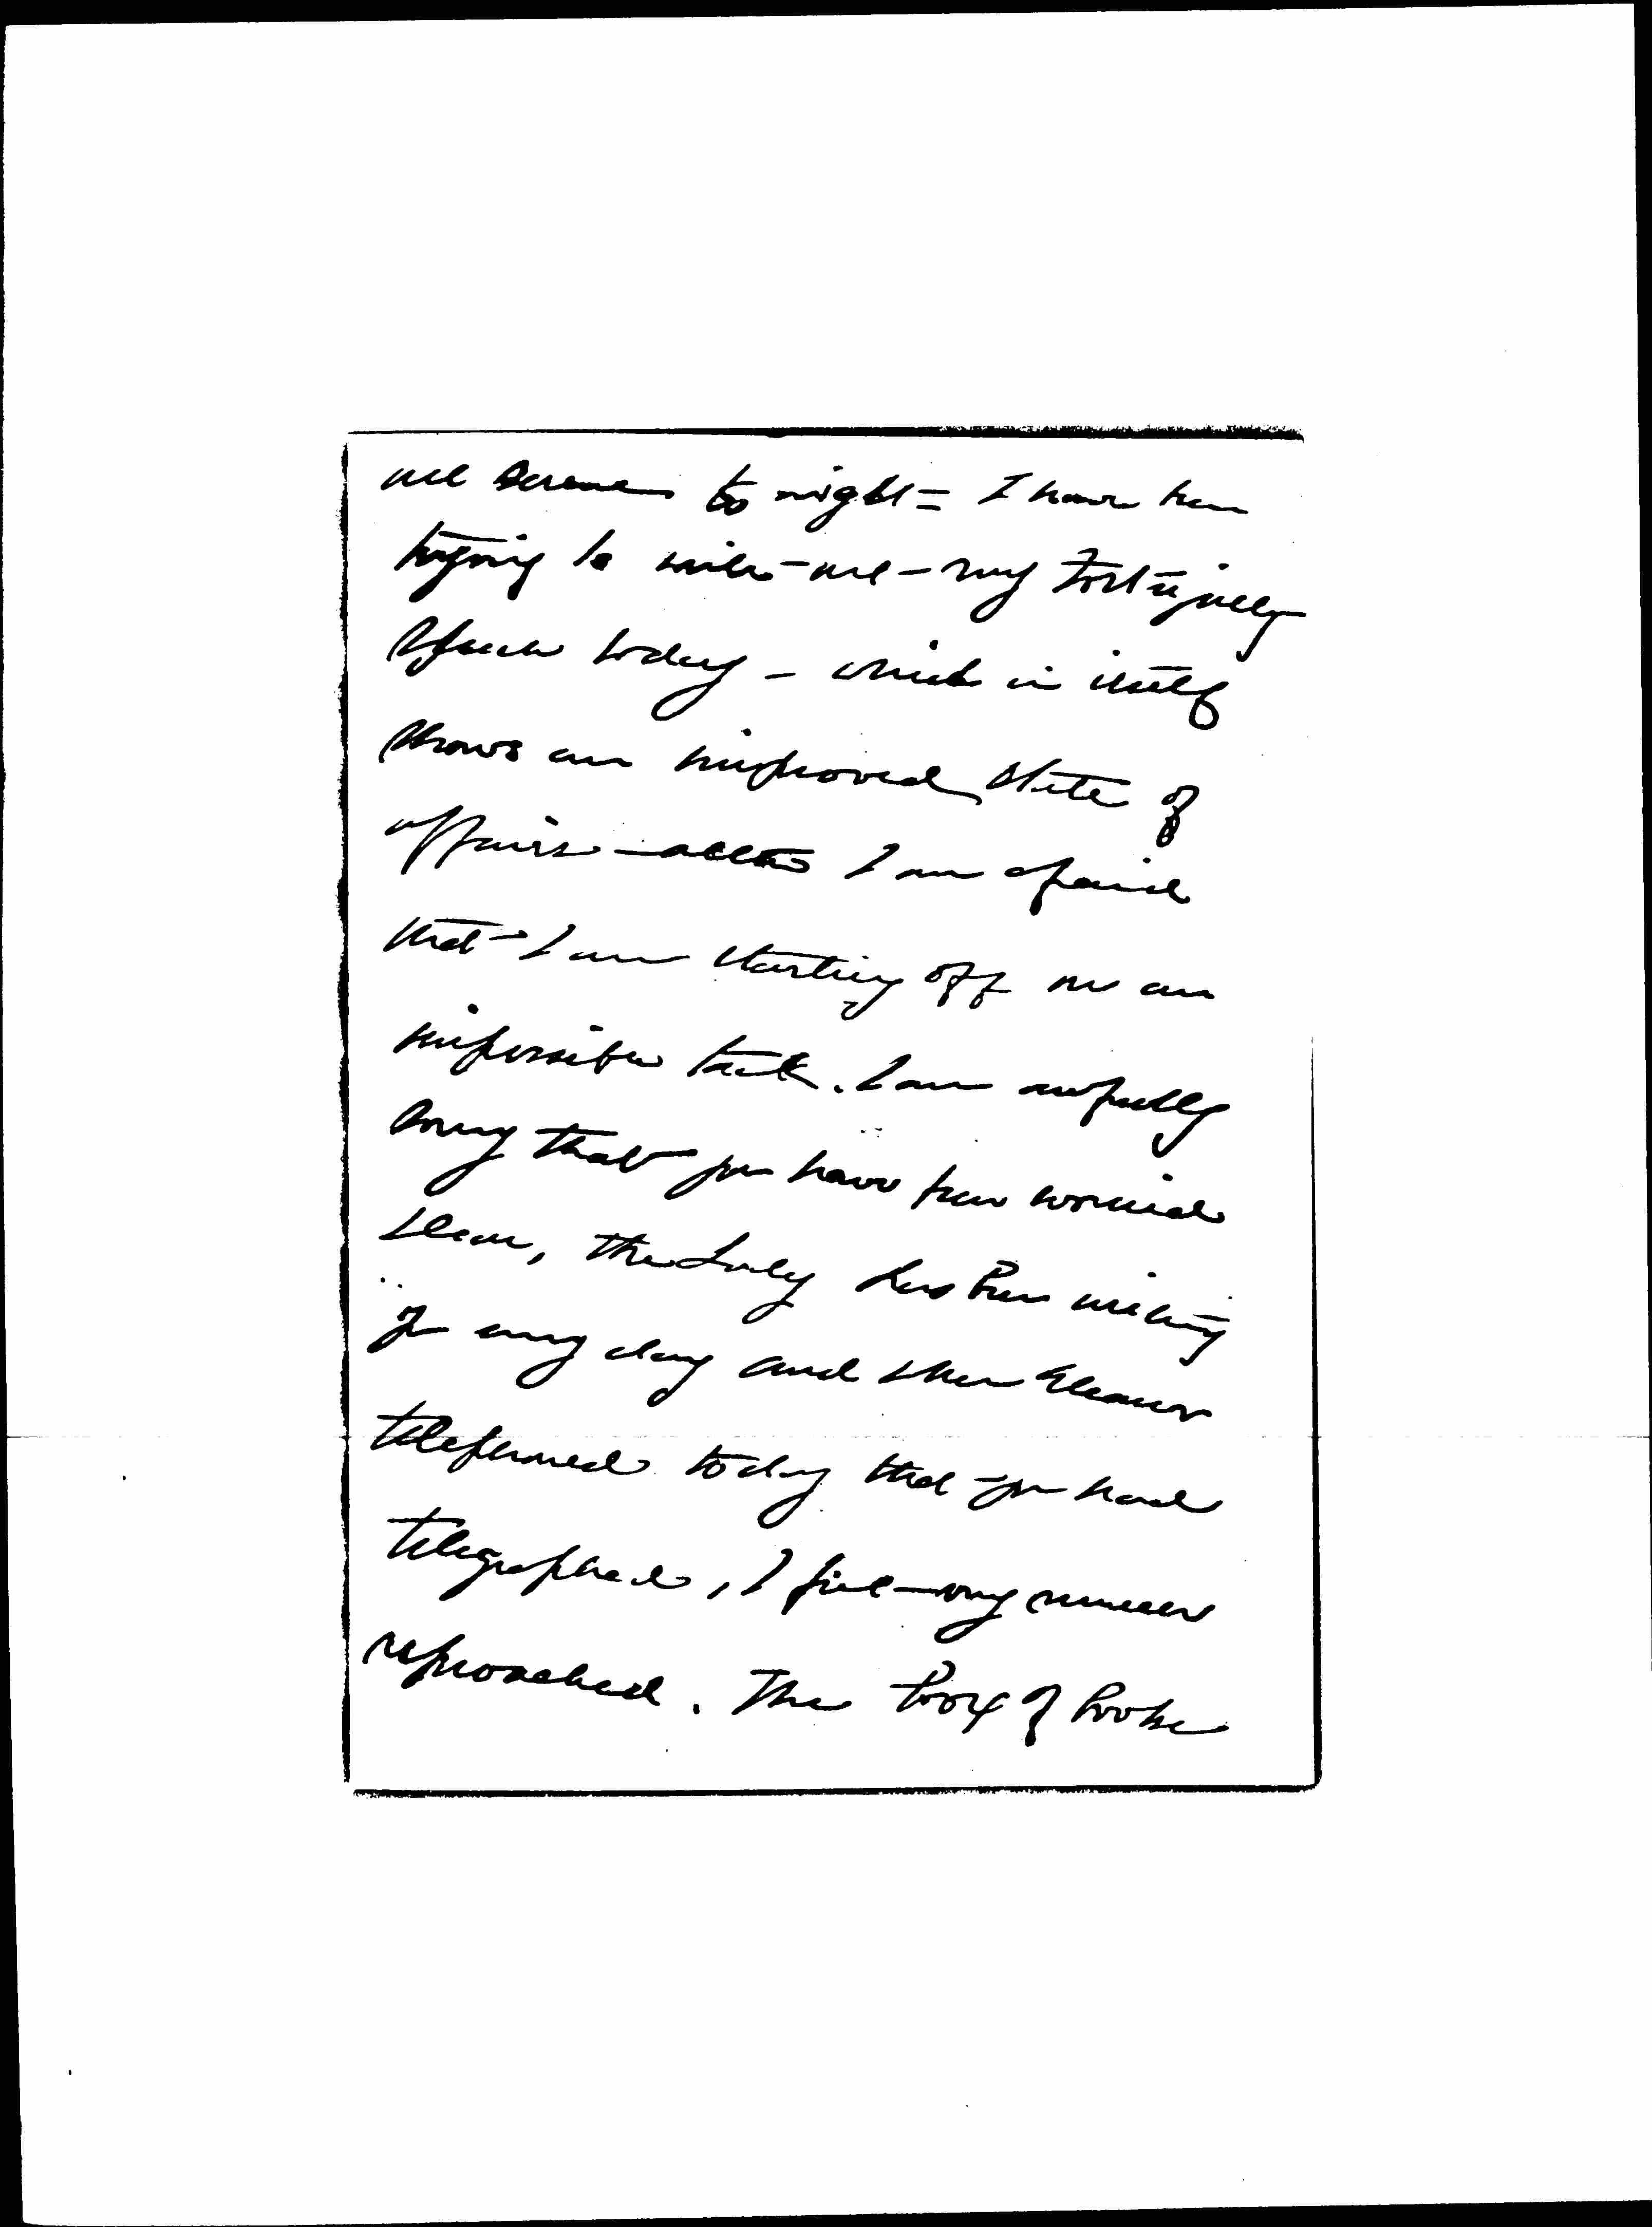 all serene to night = I have been
trying to write out my Forty july
Speech today - which in itself
shows an improved state of
affairs - altho I am afraid
that I am starting off on an
impossible task. I am awfully
sorry that you have been worried
dear, the Lady has been writing
you every day and when Eleanor
telephoned today that you had
telegraphed, I felt very much
reproached. The box of books